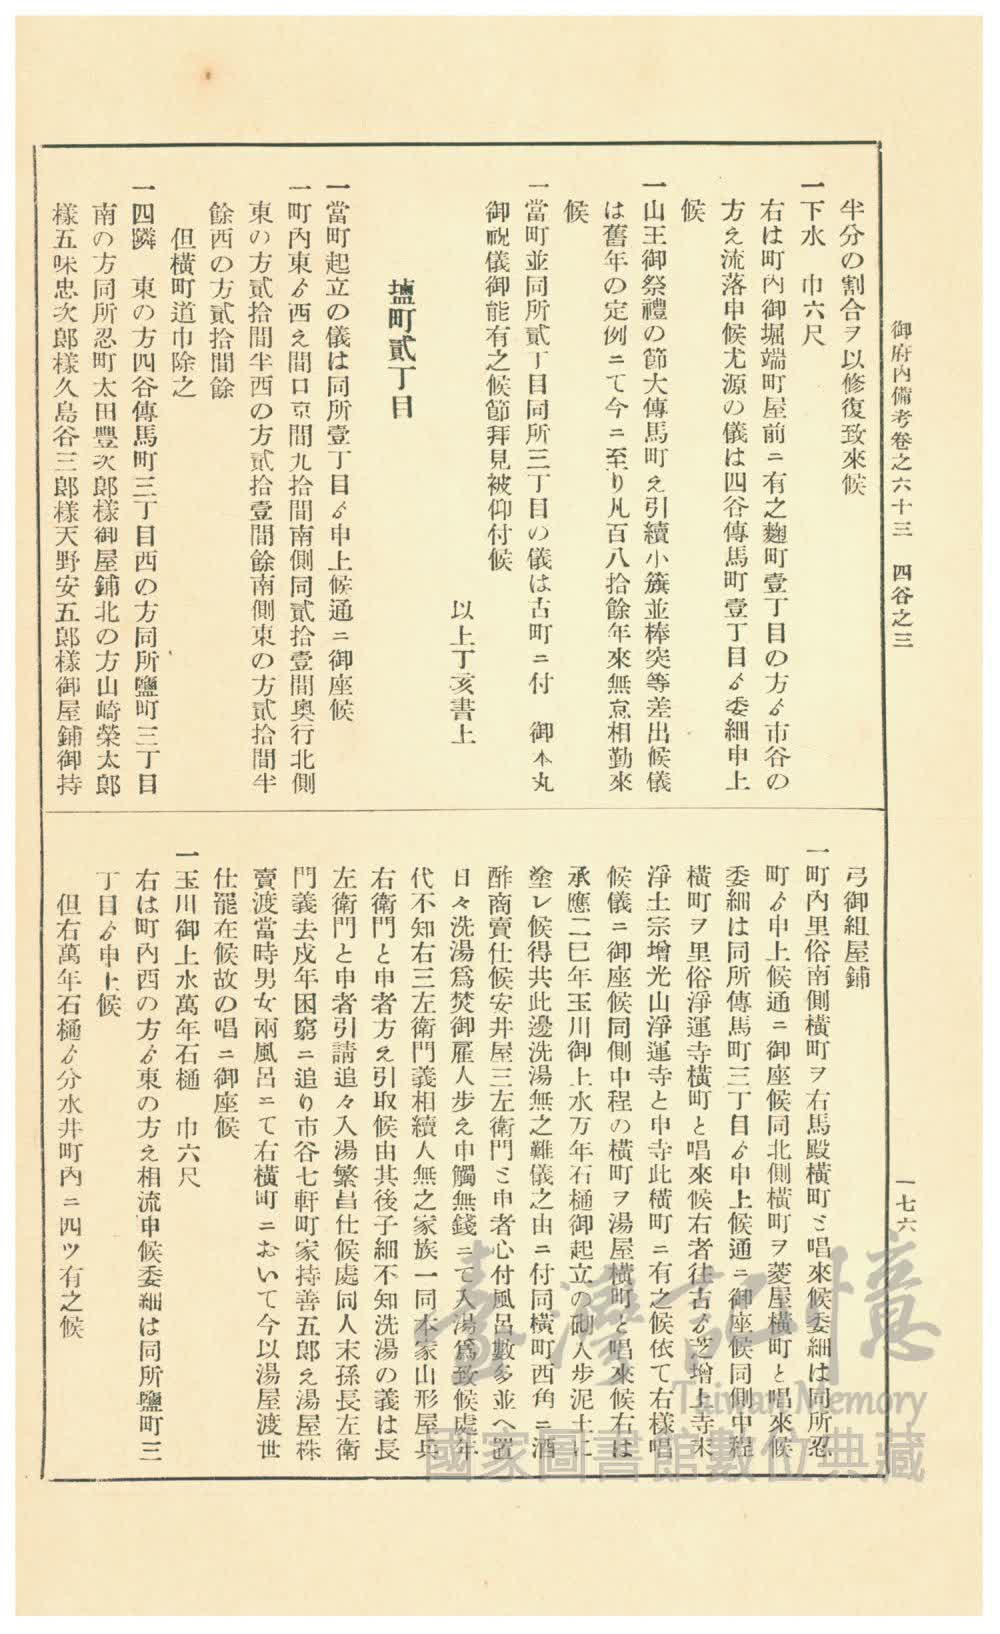 御府內備考卷之六十三　四谷之三
一七六
半分の割合ヲ以修復致來候
一下水　巾六尺
右は町內御堀端町屋前ニ有之麴町壹丁目の方ゟ市谷の
方え流落申候尤源の儀は四谷傳馬町壹丁目ゟ委細申上
候
一山王御祭禮の節大傳馬町え引續小籏並棒突等差出候儀
は舊年の定例ニて今ニ至り凡百八拾餘年來無怠相勤來
候
一當町並同所貳丁目同所三丁目の儀は古町ニ付　御本丸
御祝儀御能有之候節拜見被仰付候
以上丁亥書上
塩町貳丁目
一當町起立の儀は同所壹丁目ゟ申上候通ニ御座候
一町內東ゟ西え間口京間九拾間南側同貳拾壹間奧行北側
東の方貳拾間半西の方貳拾壹間餘南側東の方貳拾間半
餘西の方貳拾間餘
但橫町道巾除之
一四隣　東の方四谷傳馬町三丁目西の方同所鹽町三丁目
南の方同所忍町太田豐次郎樣御屋鋪北の方山崎榮太郎
樣五味忠次郎樣久島谷三郎樣天野安五郎樣御屋鋪御持
弓御組屋鋪
一町內里俗南側橫町ヲ右馬殿橫町と唱來候委細は同所忍
町ゟ申上候通ニ御座候同北側橫町ヲ菱屋橫町と唱來候
委細は同所傳馬町三丁目ゟ申上候通ニ御座候同側中程
橫町ヲ里俗淨運寺橫町と唱來候右者往古ゟ芝增上寺末
淨土宗增光山淨運寺と申寺此橫町ニ有之候依て右樣唱
候儀ニ御座候同側中程の橫町ヲ湯屋橫町と唱來候右は
承應二巳年玉川御上水万年石樋御起立の砌人步泥土に
塗レ候得共此邊洗湯無之難儀之由ニ付同橫町西角ニ酒
酢商賣仕候安井屋三左衛門と申者心付風呂數多並へ置
日々洗湯爲焚御雇人步え申觸無錢ニて入湯爲致候處年
代不知右三左衛門義相續人無之家族一同本家山形屋兵
右衛門と申者方え引取候由其後子細不知洗湯の義は長
左衛門と申者引請追々入湯繁昌仕候處同人末孫長左衛
門義去戌年困窮ニ追り市谷七軒町家持善五郎え湯屋株
賣渡當時男女兩風呂ニて右橫町ニおいて今以湯屋渡世
仕罷在候故の唱ニ御座候
一玉川御上水萬年石樋　巾六尺
右は町內西の方ゟ東の方え相流申候委細は同所鹽町三
丁目ゟ申上候
但右萬年石樋ゟ分水井町內ニ四ツ有之候
臺灣記憶
Taiwan Memory
國家圖書館數位典藏